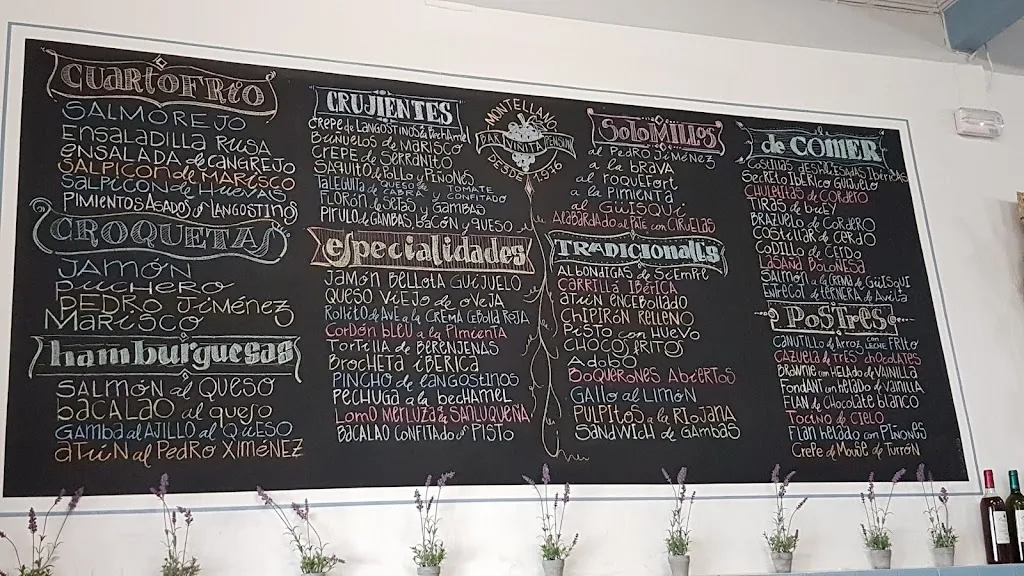 CUARTO FRIO
SALMOREJO
ENSALADILLA RUSA
ENSALADA de CANGREJO
SALPICON de MARISCO
SALPICON de HUEVAS
PIMIENTOS ASADOS LANGOSTINOS
CROQUETAS
JAMÓN
PUCHERO
PEDRO JIMÉNEZ
MARISCO
hamburguesas
SALMÓN al QUESO
BACALAO al queso
GAMBA al AJILLO al QUESO
ATÚN al PEDRO XIMÉNEZ
CRUJIENTES
CREPE de LANGOSTINOS
BUÑUELOS de MARISCO
CREPE de SERRANITO
SAQUITO de POLLO y PIÑONES
QUESO de CABRA y TOMATE CONFITADO
FLORÓN de SETAS y GAMBAS
PIRULO de GAMBAS BACÓN y QUESO
especialidades
JAMÓN BELLOTA GUIJUELO
QUESO VIEJO de OVEJA
ROLLITO de AVE a la CREMA CEBOLLA ROJA
CORDÓN BLEU a la PIMIENTA
TORTILLA de BERENJENAS
BROCHETA IBÉRICA
PINCHO de LANGOSTINOS
PECHUGA a la BECHAMEL
LOMO MERLUZA a la SANLUQUEÑA
BACALAO CONFITADO PISTO
MONTELLANO
DESDE 1976
SOLOMILLOS
al PEDRO JIMÉNEZ
a la BRAVA
al ROQUEFORT
a la PIMIENTA
al GÜISQUI
al PATÉ con CIRUELAS
TRADICIONALES
ALBÓNDIGAS de SIEMPRE
CARRILLÁ IBÉRICA
ATÚN ENCEBOLLADO
CHIPIRÓN RELLENO
PISTO con HUEVO
CHOCO FRITO
ADOBO
BOQUERONES ABIERTOS
GALLO al LIMÓN
PULPITOS a la RIOJANA
SANDWICH de GAMBAS
de COMER
SECRETO IBÉRICO GUIJUELO
CHULETITAS de CORDERO
TIRAS de BUEY
BRAZUELO de CORDERO
COSTILLAR de CERDO
CODILLO de CERDO
LASAÑA BOLOÑESA
SALMÓN a la CREMA de GÜISQUI
ENTRECOT de TERNERA de AVILA
POSTRES
CANUTILLO de Arroz con LECHE FRITO
CAZUELA de TRES CHOCOLATES
BROWNIE con HELADO de VAINILLA
FONDANT con HELADO de VAINILLA
FLAN de CHOCOLATE BLANCO
TOCINO de CIELO
FLAN HELADO con PIÑONES
CREPE de MOUSE de TURRÓN